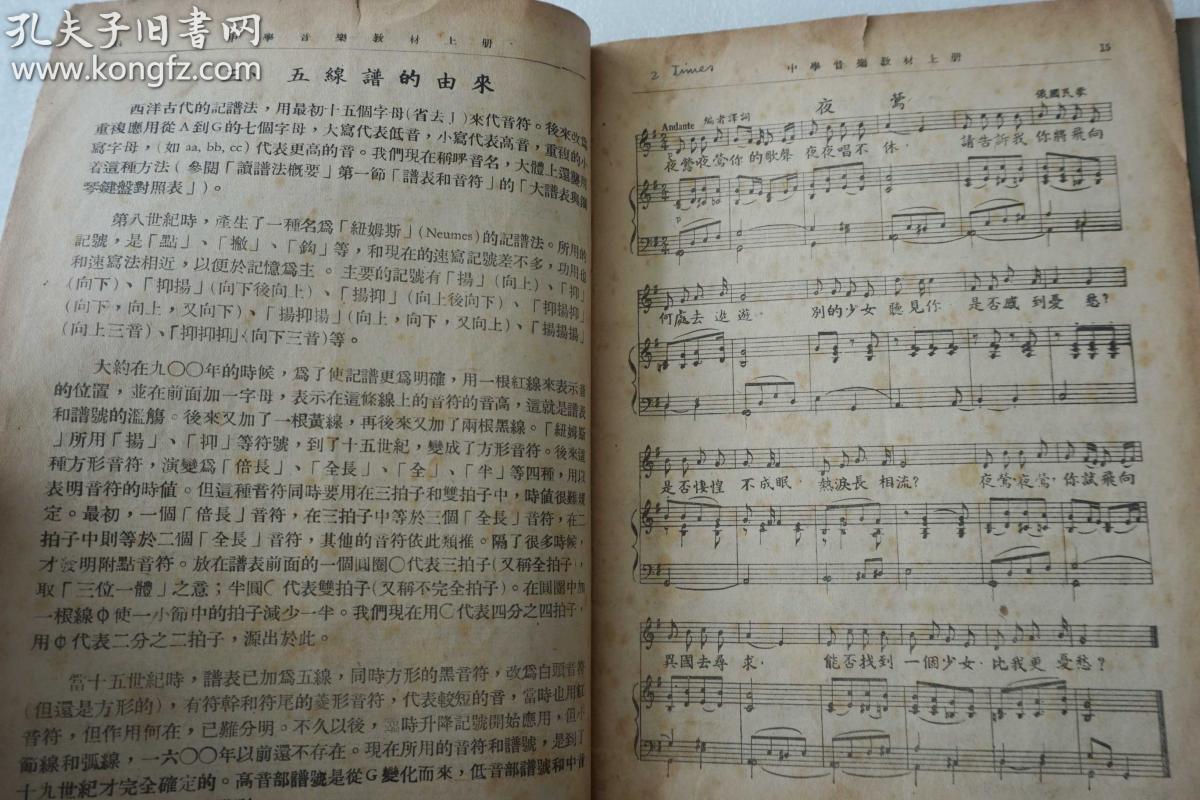 孔夫子旧书网
www.kongfz.com
學音樂教材上册
五線譜的由來
西洋古代的記譜法，用最初十五個字母(省去J)來代音符。後來改爲
重複應用從A到G的七個字母，大寫代表低音，小寫代表高音，重複的小
寫字母，(如 aa, bb, cc) 代表更高的音。我們現在稱呼音名，大體上還襲用
着這種方法 (參閱「讀譜法概要」第一節「譜表和音符」的「大譜表與鋼
琴鍵盤對照表」)。
第八世紀時，產生了一種名爲「紐姆斯」(Neumes) 的記譜法。所用的
記號，是「點」、「撇」、「鈎」等，和現在的速寫記號差不多，功用也
和速寫法相近，以便於記憶爲主。主要的記號有「揚」(向上)、「抑」
(向下)、「抑揚」(向下後向上)、「揚抑」(向上後向下)、「抑揚抑」
(向下，向上，又向下)、「揚抑揚」(向上，向下，又向上)、「揚揚揚」
(向上三音)、「抑抑抑」(向下三音) 等。
大約在九〇〇年的時候，爲了使記譜更爲明確，用一根紅線來表示音
的位置，並在前面加一字母，表示在這條線上的音符的音高，這就是譜表
和譜號的濫觴。後來又加了一根黃線，再後來又加了兩根黑線。「紐姆斯
」所用「揚」、「抑」等符號，到了十五世紀，變成了方形音符。後來這
種方形音符，演變爲「倍長」、「全長」、「全」、「半」等四種，用以
表明音符的時値。但這種音符同時要用在三拍子和雙拍子中，時値很難規
定。最初，一個「倍長」音符，在三拍子中等於三個「全長」音符，在二
拍子中則等於二個「全長」音符，其他的音符依此類推。隔了很多時候，
才發明附點音符。放在譜表前面的一個圓圈〇代表三拍子 (又稱全拍子)，
取「三位一體」之意；半圓C代表雙拍子 (又稱不完全拍子)。在圓圈中加
一根線Φ使一小節中的拍子減少一半。我們現在用C代表四分之四拍子，
用Φ代表二分之二拍子，源出於此。
當十五世紀時，譜表已加爲五線，同時方形的黑音符，改爲白頭音符
(但還是方形的)，有符幹和符尾的菱形音符，代表較短的音，當時也用紅
音符，但作用何在，已難分明。不久以後，臨時升降記號開始應用，但小
節線和弧線，一六〇〇年以前還不存在。現在所用的音符和譜號，是到了
十九世紀才完全確定的。高音部譜號是從G變化而來，低音部譜號和中
2 Times
中學音樂教材上册
15
夜鶯
俄國民歌
Andante
編者譯詞
夜鶯夜鶯你的歌聲 夜夜唱不 休． 請告訴我 你將飛向
何處去 巡 遊． 別的少女 聽見你 是否感 到憂 愁？
是否悽惶 不成眠． 熱淚長 相流？ 夜鶯夜鶯，你試飛向
異國去尋 求． 能否找到 一個少女．比我更 憂愁？